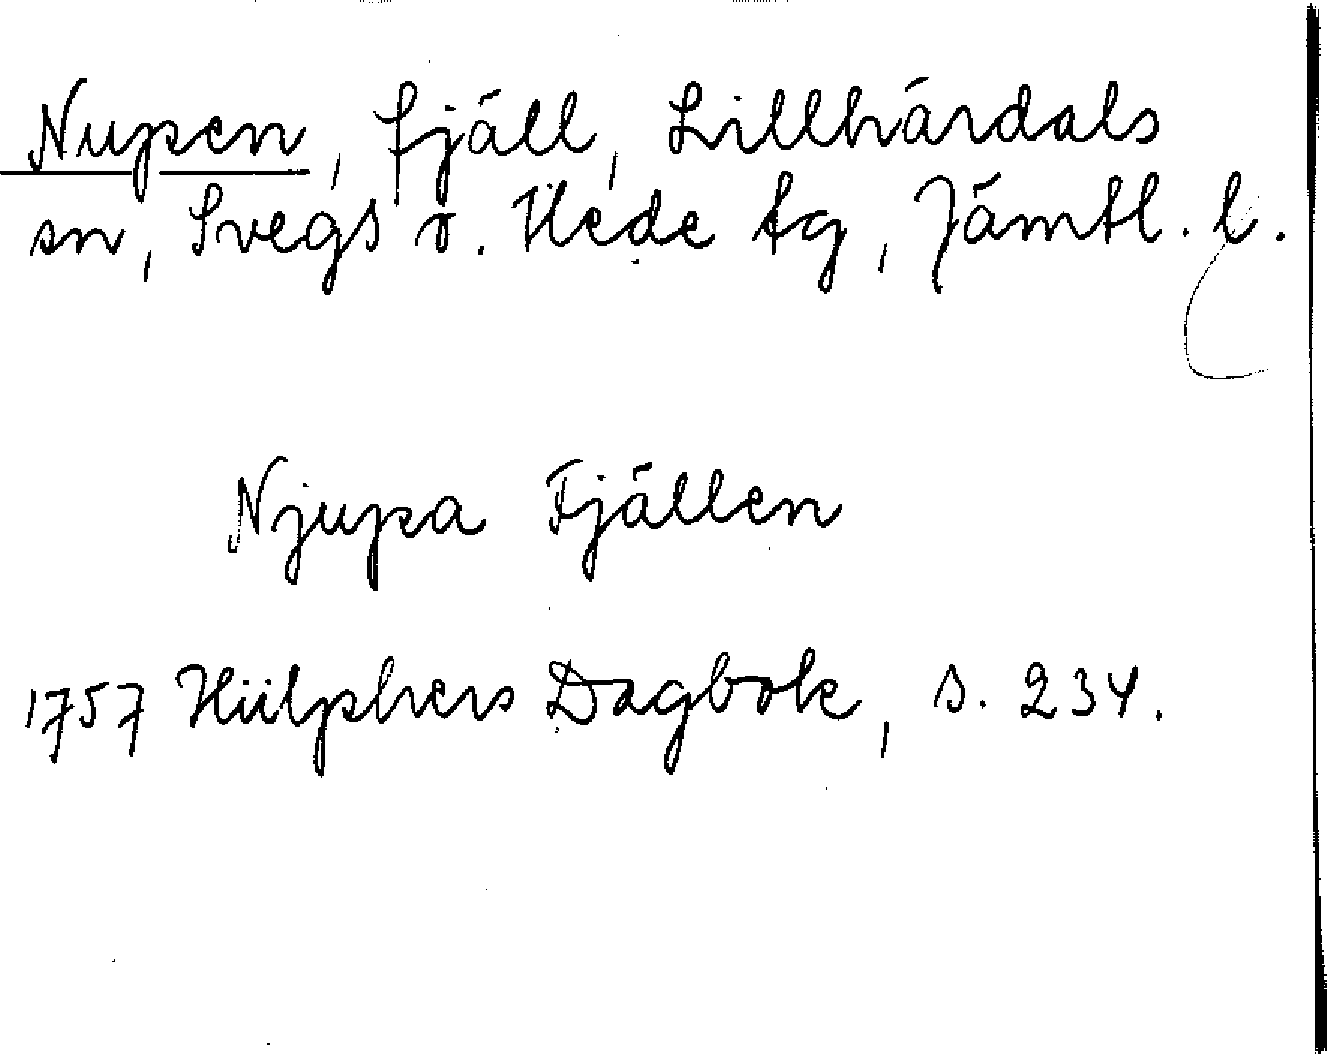 Nupen, fjäll, Lillhärdals
sn, Svegs o. Hede tg, Jämtl. l.
Njupa Fjällen
1757 Hülphers Dagbok, s. 234.